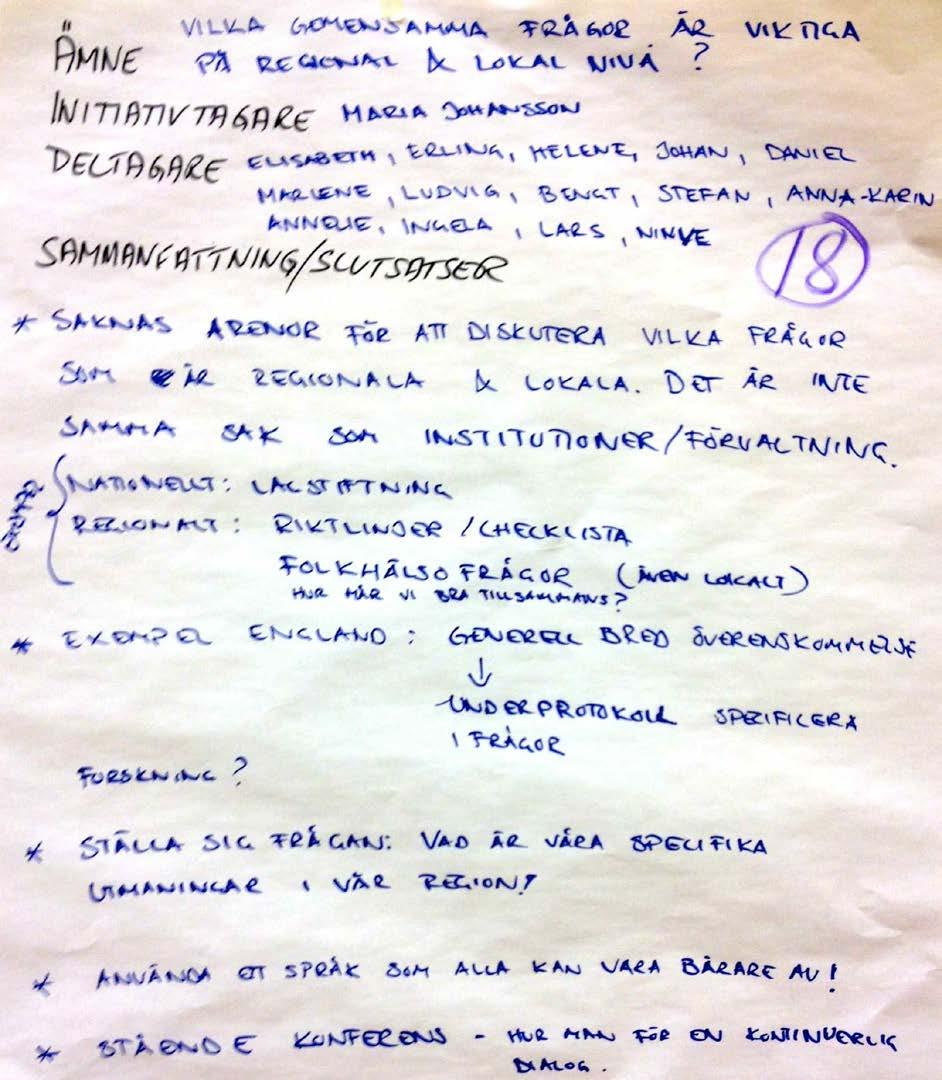 VILKA GEMENSAMMA FRÅGOR ÄR VIKTIGA
ÄMNE PÅ REGIONAL & LOKAL NIVÅ ?
INITIATIVTAGARE MARIA JOHANSSON
DELTAGARE ELISABETH, ERLING, HELENE, JOHAN, DANIEL
MARLENE, LUDVIG, BENGT, STEFAN, ANNA-KARIN
ANNELIE, INGELA, LARS, NINVE
18
SAMMANFATTNING/SLUTSATSER
* SAKNAS ARENOR FÖR ATT DISKUTERA VILKA FRÅGOR
SOM ÄR REGIONALA & LOKALA. DET ÄR INTE
SAMMA SAK SOM INSTITUTIONER/FÖRVALTNING.
NATIONELLT: LAGSTIFTNING
REGIONALT: RIKTLINJER /CHECKLISTA
FOLKHÄLSOFRÅGOR (ÄVEN LOKALT)
HUR MÅR VI BRA TILLSAMMANS?
* EXEMPEL ENGLAND: GENERELL BRED ÖVERENSKOMMELSE
↓
UNDERPROTOKOLL SPECIFICERA
I FRÅGOR
FORSKNING?
* STÄLLA SIG FRÅGAN: VAD ÄR VÅRA SPECIFIKA
UTMANINGAR I VÅR REGION?
* ANVÄNDA ETT SPRÅK SOM ALLA KAN VARA BÄRARE AV!
* STÅENDE KONFERENS - HUR MAN FÖR EN KONTINUERLIG
DIALOG.